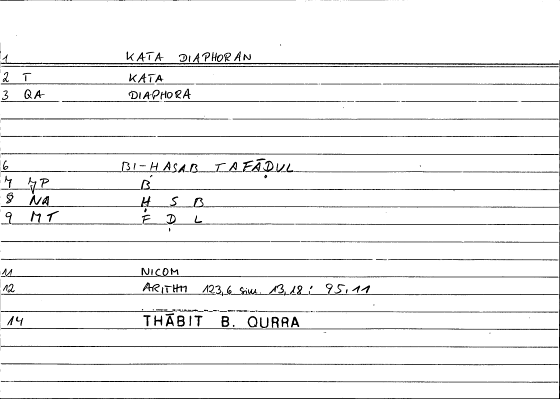 1 KATA DIAPHORAN
2 T KATA
3 QA DIAPHORA
6 BI-ḤASAB TAFĀḌUL
7 JP B
8 NA Ḥ S B
9 MT F Ḍ L
11 NICOM
12 ARITHM 123,6 sim. 13,18 : 95,11
14 THĀBIT B. QURRA